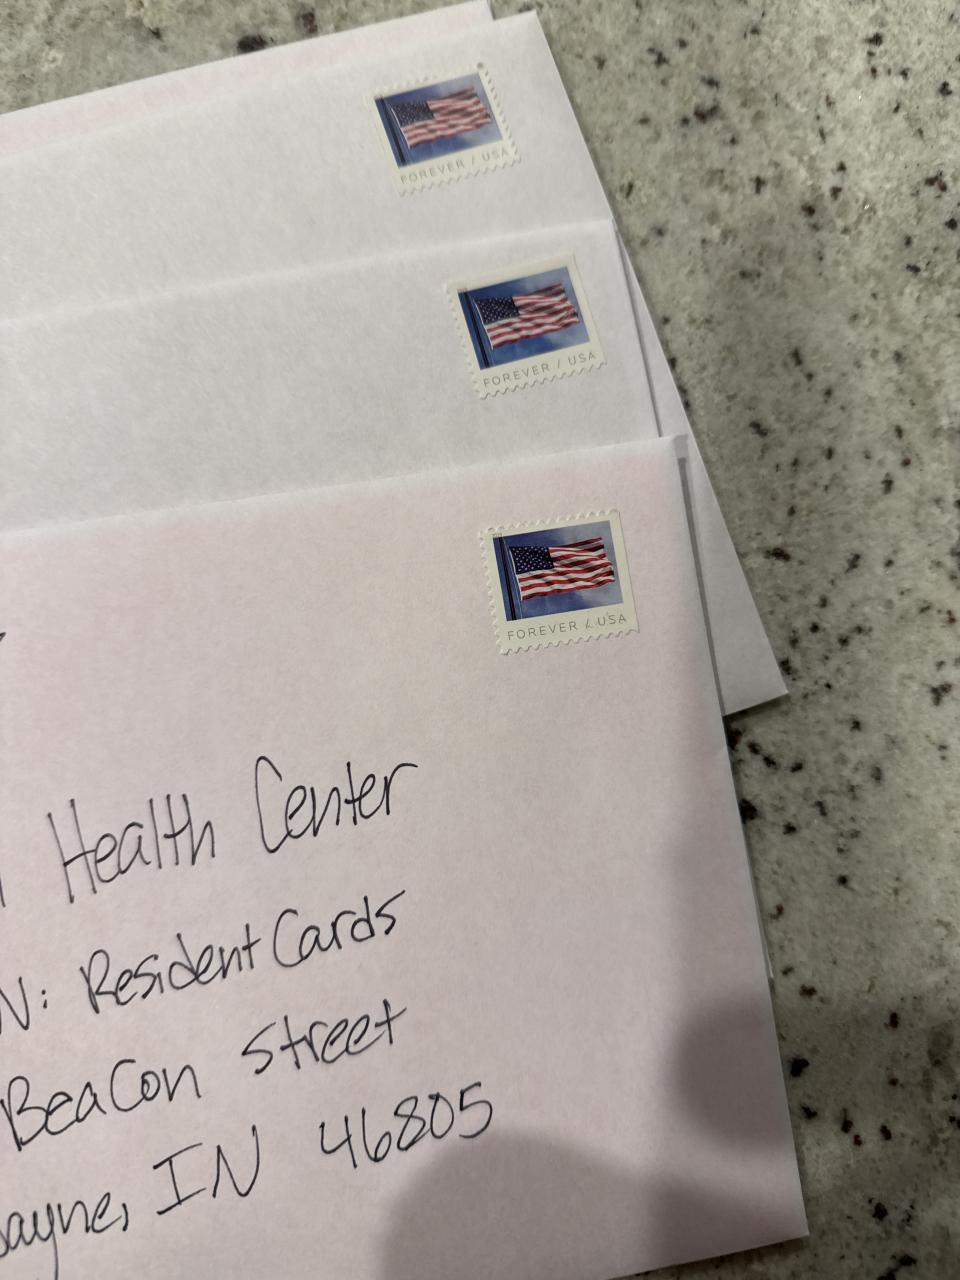 FOREVER / USA
FOREVER / USA
FOREVER / USA
Health Center
N: Resident Cards
Beacon Street
ayne, IN 46805